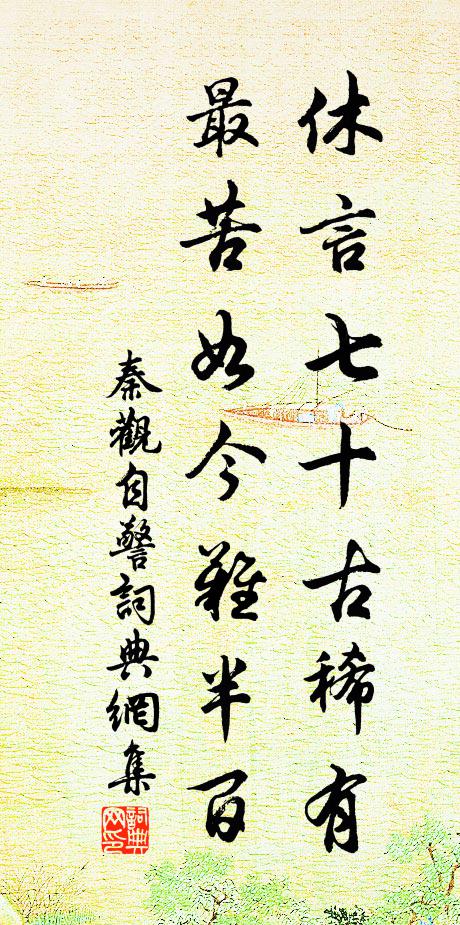 休言七十古稀有
最苦如今難半百
秦觀自警詞典網集
詞典網印